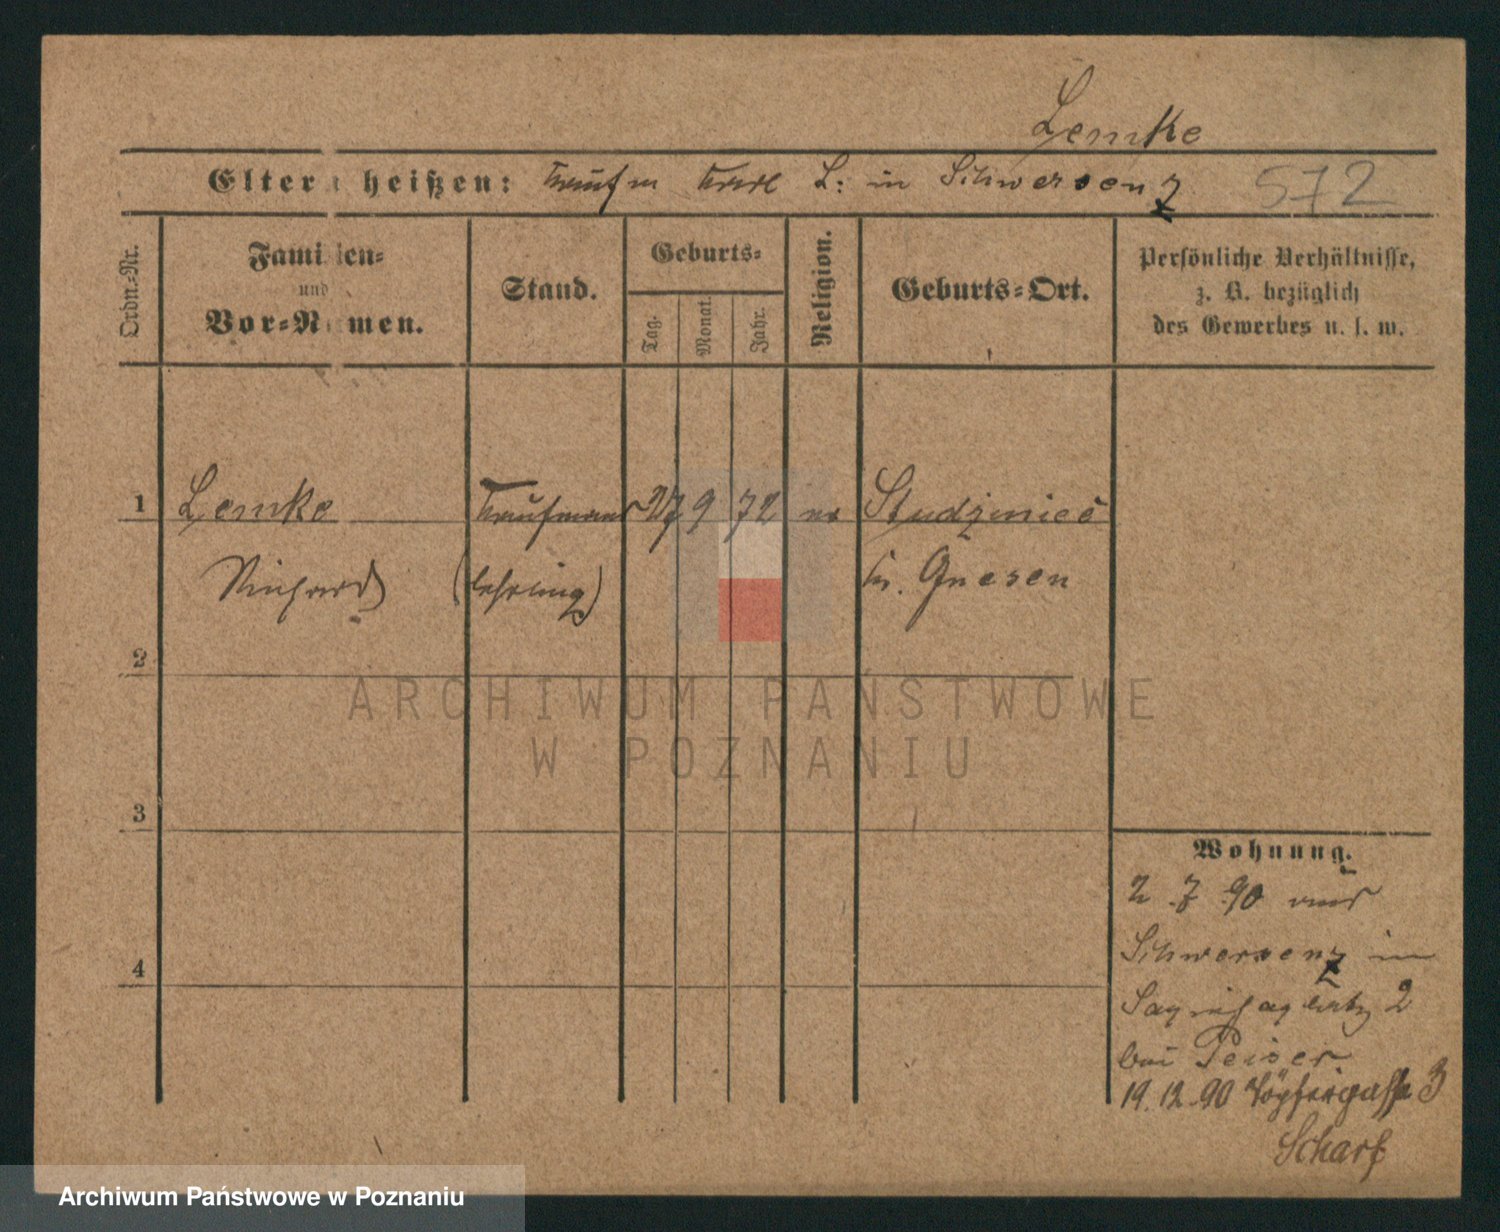 Lemke
Eltern heißen: Kaufm Karl L: in Schwersenz
572
Ordn.-Nr.
Familien-
und
Vor-Namen.
Stand.
Geburts-
Tag.
Monat.
Jahr.
Religion.
Geburts-Ort.
Persönliche Verhältnisse,
z. B. bezüglich
des Gewerbes u. s. w.
1 Lemke Kaufmann 27 9 72 ev Studzinice
Richard (lehrling) Kr. Gnesen
2
3
4
Wohnung.
2.7.90 aus
Schwersenz in
Sapiehaplatz 2
bei Peiser
19.12.90 Töpfergasse 3
Scharf
ARCHIWUM PAŃSTWOWE
W POZNANIU
Archiwum Państwowe w Poznaniu